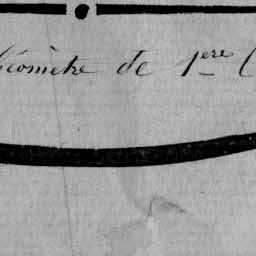 Géomètre de 1ere C